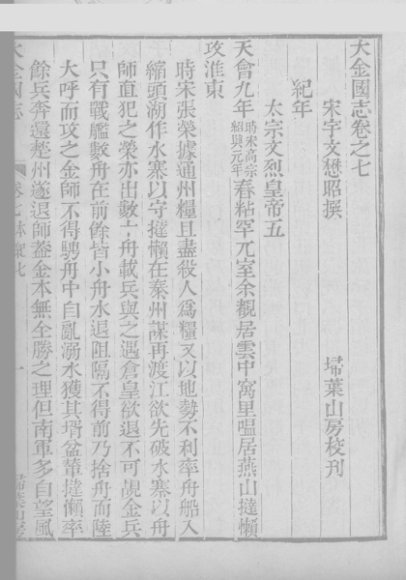 大金國志卷之七
宋宇文懋昭撰
埽葉山房校刊
紀年
太宗文烈皇帝五
天會九年時宋高宗紹興元年春粘罕兀室余覩居雲中窩里嗢居燕山撻懶
攻淮東
時宋張榮據通州糧且盡殺人為糧又以地勢不利率舟船入
縮頭湖作水寨以守撻懶在秦州謀再渡江欲先破水寨以舟
師直犯之榮亦出數十舟載兵與之遇倉皇欲退不可覘金兵
只有戰艦數舟在前餘皆小舟水退阻隔不得前乃捨舟而陸
大呼而攻之金師不得騁舟中自亂溺水獲其壻盆輦撻懶率
餘兵奔還楚州遂退師蓋金本無全勝之理但南軍多自望風
大金國志
卷七
一
埽葉山房